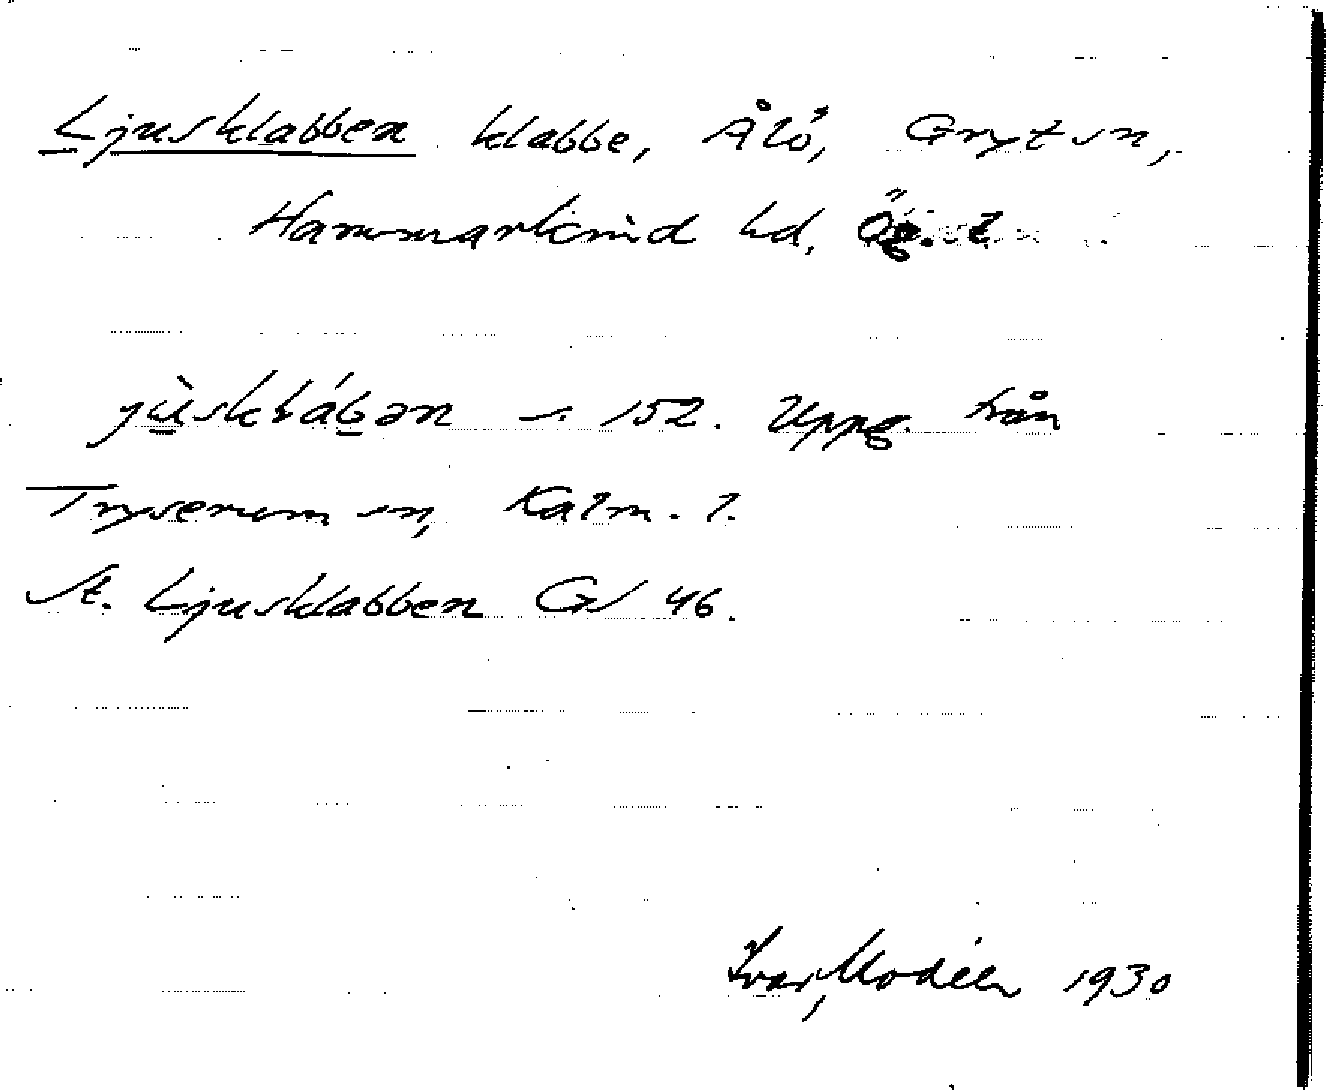 Ljusklabben klabbe, Ålö, Gryt sn,
Hammarkind hd, Ög. l
jùsklábən s. 152. Uppg. från
Tryserum sn, Kalm. l.
St. Ljusklabben GS 46.
Ivar Modéer 1930